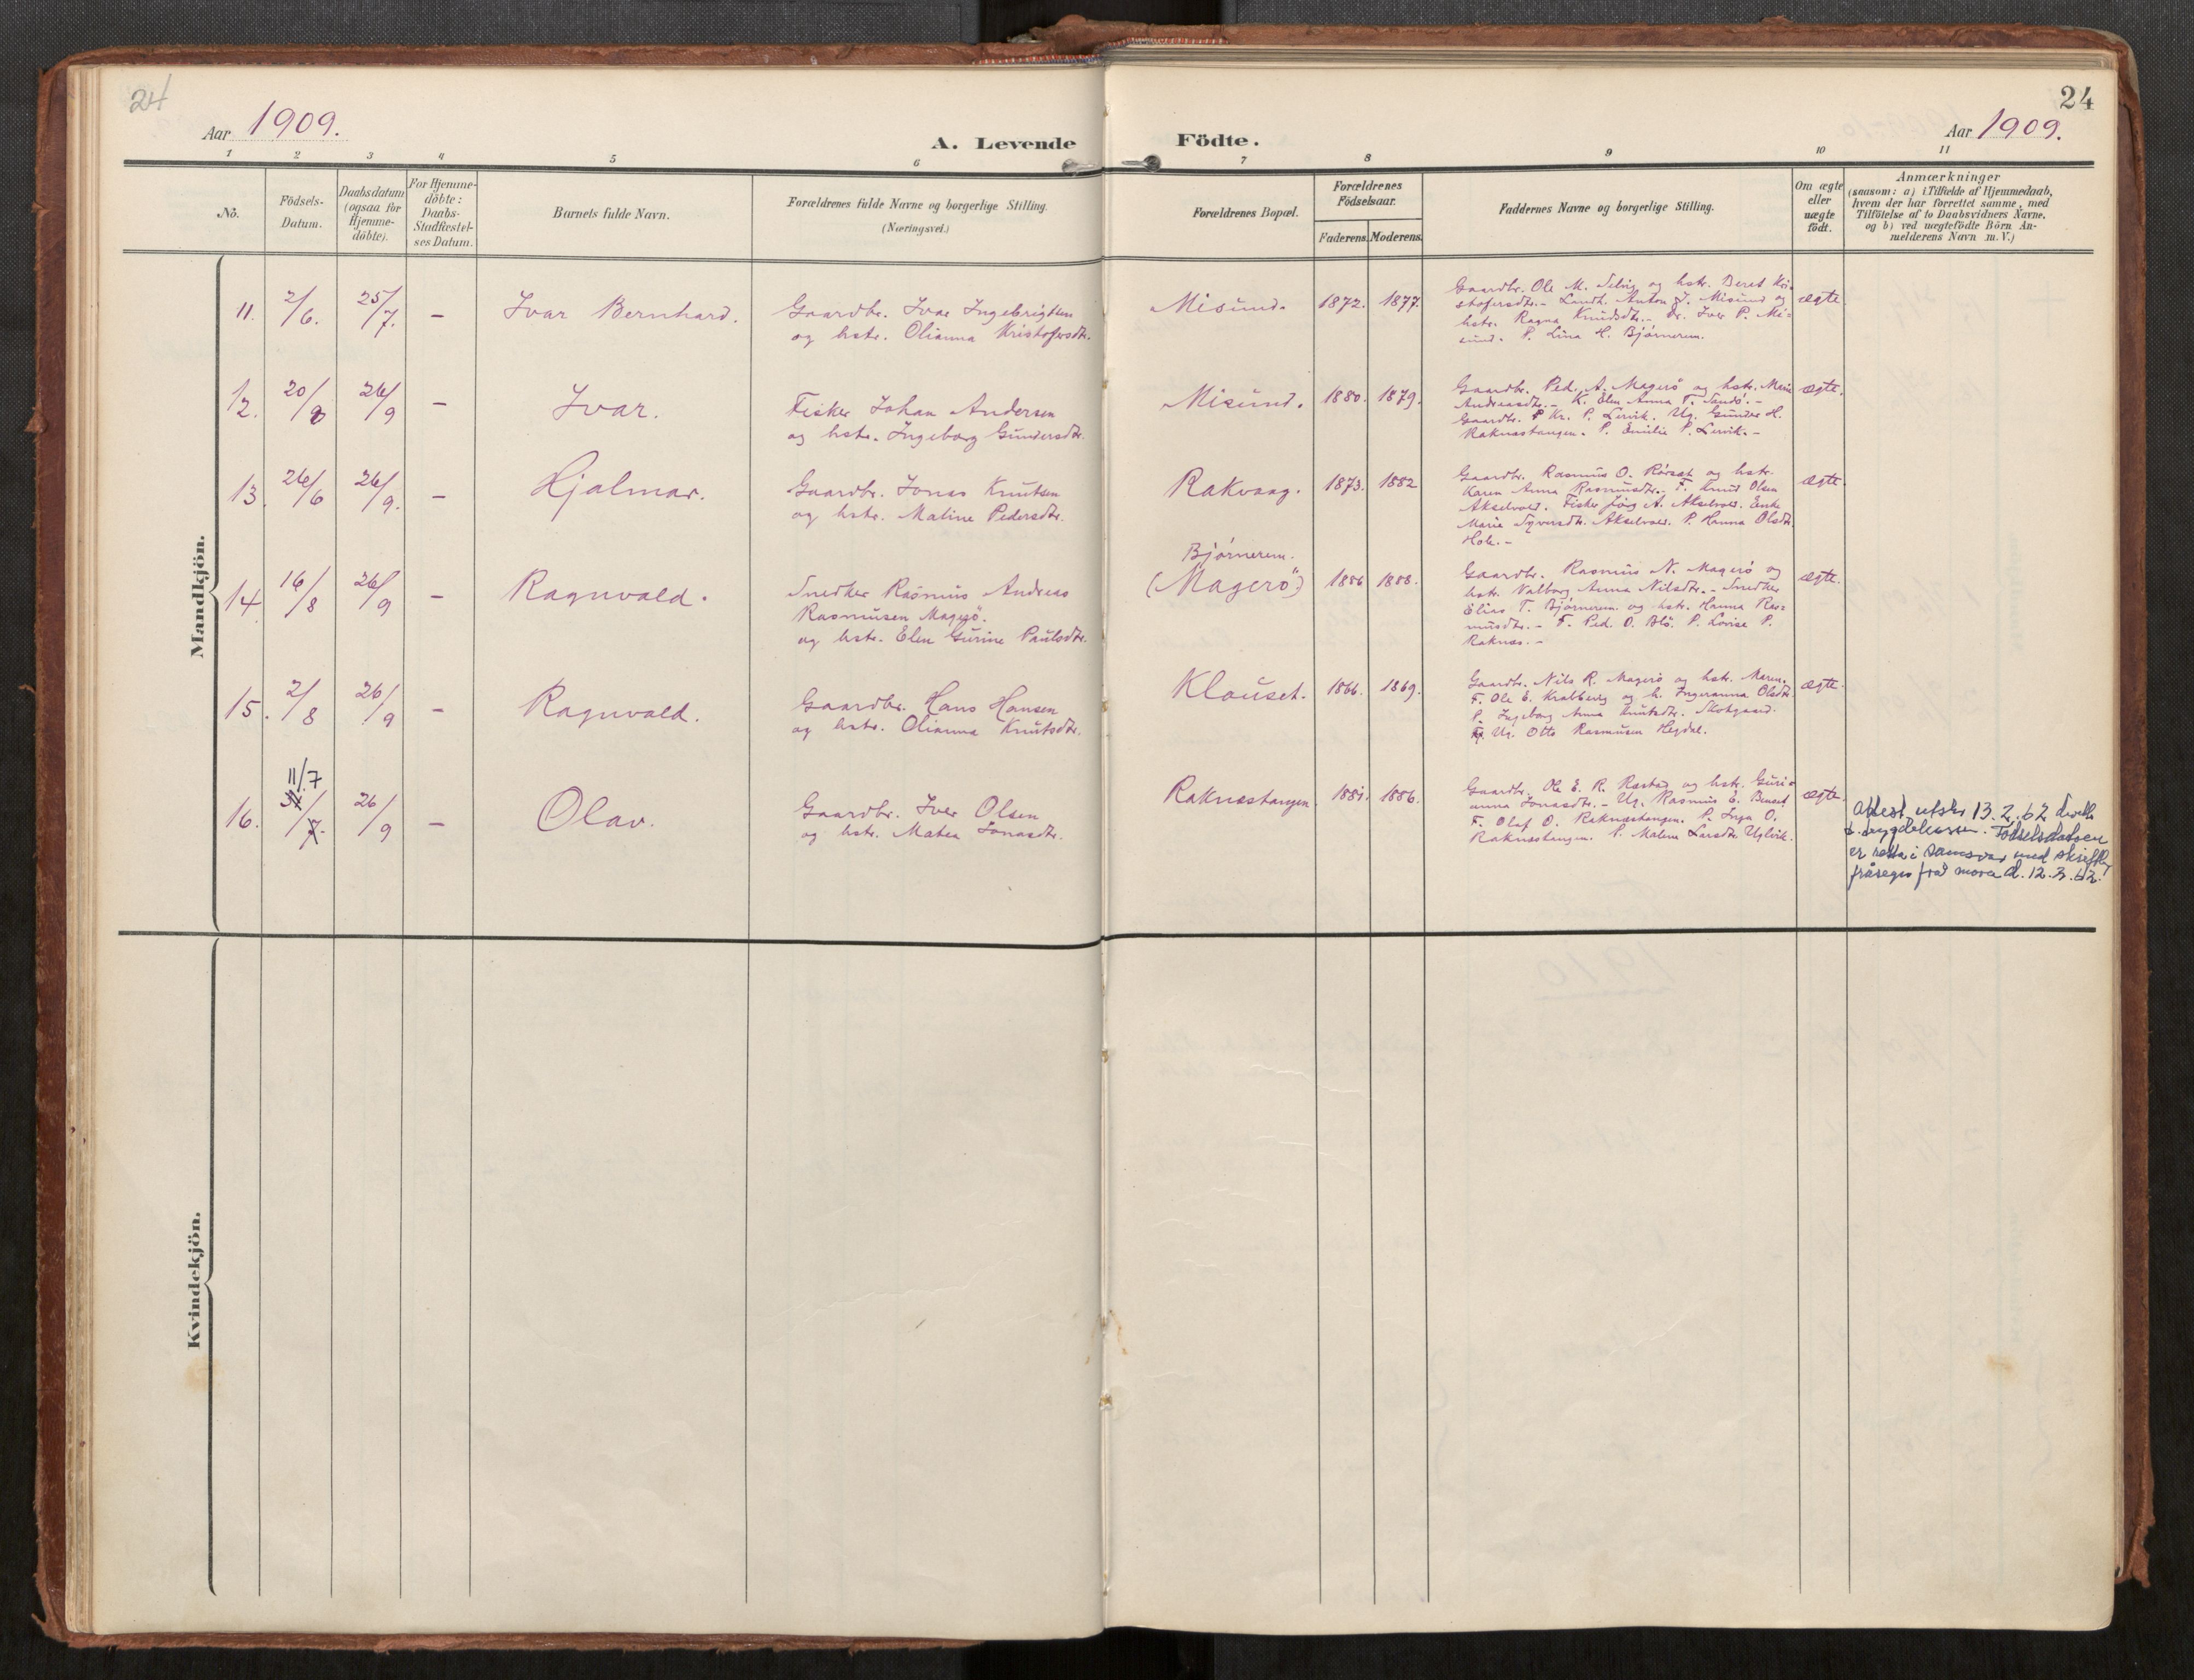 24
24
Aar 1909.
A. Levende
Födte.
Aar 1909.
1 2 3 4 5 6 7 8 9 10 11
No.
Födsels-
Datum.
Daabsdatum
(ogsaa for
Hjemme-
döbte).
For Hjemme-
döbte:
Daabs-
Stadfæstel-
ses Datum.
Barnets fulde Navn.
Forældrenes fulde Navne og borgerlige Stilling.
(Næringsvei.)
Forældrenes Bopæl.
Forældrenes
Födselsaar.
Faderens. Moderens.
Faddernes Navne og borgerlige Stilling.
Om ægte
eller
uægte
födt.
Anmærkninger
(saasom: a) i Tilfælde af Hjemmedaab,
hvem der har forrettet samme, med
Tilföielse af to Daabsvidners Navne,
og b) ved uægtefödte Börn An-
melderens Navn m. V.)
Mandkjön.
11. 2/6. 25/7. – Ivar Bernhard.
Gaardbr. Ivar Ingebrigtsen
og hstr. Olianna Kristofersdtr.
Misund. 1872. 1877.
Gaardbr. Ole M. Selvig og hstr. Beret Kri-
stofersdtr. – Landh. Anton J. Misund og
hstr. Ragna Knudsdtr. – Dr. Iver P. Mi-
sund. P. Lina H. Bjørnerem.
ægte
12. 20/8 26/9 – Ivar.
Fisker Johan Andersen
og hstr. Ingeborg Gundersdtr.
Misund. 1880. 1879.
Gaardbr. Ped. A. Magerö og hstr. Marie
Andreasdtr. – K. Elen Anna T. Sandö. –
Gaardbr. Kr. P. Lervik. Ug. Gunder H.
Raknestangen. P. Emilie P. Lervik. –
ægte.
13. 26/6 26/9. – Hjalmar.
Gaardbr. Jonas Knutsen
og hstr. Maline Pedersdtr.
Rakvaag. 1873. 1882
Gaardbr. Rasmus O. Rörset og hstr.
Karen Anna Rasmusdtr. F. Knud Olsen
Akselvold. Fisker A. Akselvold. Enke
Marie Syversdtr. Akselvold. P. Hanna Olsdtr.
Hole. –
ægte.
14. 16/8 26/9 – Ragnvald.
Snedker Rasmus Andreas
Rasmusen Magerö.
og hstr. Elen Gurine Paulsdtr.
Bjørnerem.
(Magerö) 1886 1888.
Gaardbr. Rasmus N. Magerö og
hstr. Valborg Anna Nilsdtr. – Snedker
Elias T. Bjørnerem og hstr. Hanna Ras-
musdtr. – F. Ped. O. P. Lovise P.
Raknes. –
ægte.
15. 2/8 26/9 – Ragnvald.
Gaardbr. Hans Hansen
og hstr. Olianna Knutsdtr.
Klauset. 1866. 1869.
Gaardbr. Nils R. Magerö og hstr. Maren.
F. Ole E. og h. Ingeranna Olsdtr.
P. Ingeborg Anna Knutsdtr. Skotgaard.
Ug. Otto Rasmusen Hegdal.
ægte.
11/7
16. 31/7. 26/9 – Olav.
Gaardbr. Iver Olsen
og hstr. Matea Jonasdtr.
Raknestangen. 1881. 1886.
Gaardbr. Ole E. R. Ræstad og hstr. Guri-
anna Jonasdtr. – Ug. Rasmus E.
F. Olaf O. Raknestangen. P. Inga O.
Raknestangen. P. Malena Larsdtr. Uglvik.
ægte.
Attest utskr 13.2.62
t. trygdekassen. Födselsdatoen
er retta i samsvar med skriftleg
fråsegn frå mora d. 12.2.62.
Kvindekjön.